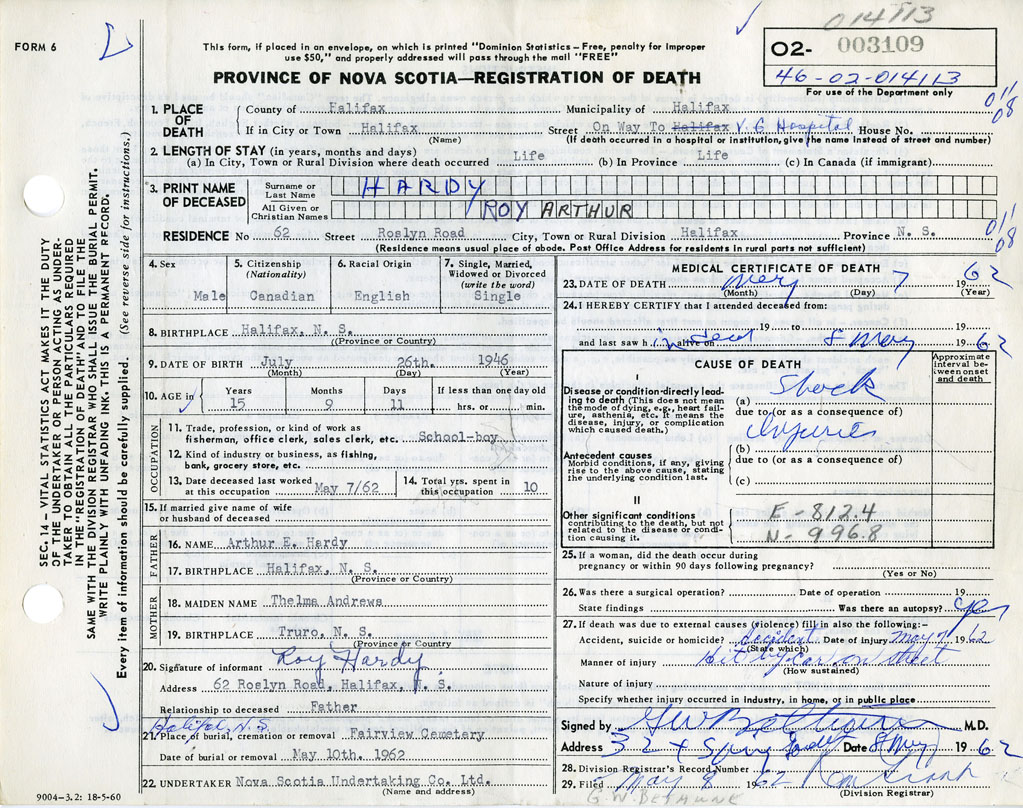 014113
FORM 6
This form, if placed in an envelope, on which is printed "Dominion Statistics—Free, penalty for improper
use $50," and properly addressed will pass through the mail "FREE"
O2- 003109
46-02-014113
For use of the Department only
PROVINCE OF NOVA SCOTIA—REGISTRATION OF DEATH
011
08
1. PLACE OF DEATH
County of Halifax Municipality of Halifax
If in City or Town Halifax Street On Way To Halifax V. G Hospital House No.
(Name) (If death occurred in a hospital or institution, give the name instead of street and number)
2. LENGTH OF STAY (in years, months and days)
(a) In City, Town or Rural Division where death occurred Life (b) In Province Life (c) In Canada (if immigrant)
3. PRINT NAME OF DECEASED
Surname or Last Name HARDY
All Given or Christian Names ROY ARTHUR
RESIDENCE No 62 Street Roslyn Road City, Town or Rural Division Halifax Province N. S.
(Residence means usual place of abode. Post Office Address for residents in rural parts not sufficient)
011
08
4. Sex Male
5. Citizenship (Nationality) Canadian
6. Racial Origin English
7. Single, Married, Widowed or Divorced (write the word) Single
8. BIRTHPLACE Halifax, N. S.
((Province or Country)
9. DATE OF BIRTH July 26th. 1946
(Month) (Day) (Year)
10. AGE in Years 15 Months 9 Days 11 If less than one day old hrs. or min.
OCCUPATION
11. Trade, profession, or kind of work as
fisherman, office clerk, sales clerk, etc. School-boy
12. Kind of industry or business, as fishing,
bank, grocery store, etc.
13. Date deceased last worked at this occupation May 7/62
14. Total yrs. spent in this occupation 10
15. If married give name of wife
or husband of deceased
FATHER
16. NAME Arthur E. Hardy
17. BIRTHPLACE Halifax, N. S.
(Province or Country)
MOTHER
18. MAIDEN NAME Thelma Andrews
19. BIRTHPLACE Truro, N. S.
(Province or Country
20. Signature of informant Roy Hardy
Address 62 Roslyn Road, Halifax, N. S.
Relationship to deceased Father
Halifax, N.S.
21. Place of burial, cremation or removal Fairview Cemetery
Date of burial or removal May 10th. 1962
22. UNDERTAKER Nova Scotia Undertaking Co. Ltd.
(Name and address)
9004-3.2: 18-5-60
MEDICAL CERTIFICATE OF DEATH
23. DATE OF DEATH May 7 1962
(Month) (Day) (Year)
24. I HEREBY CERTIFY that I attended deceased from:
19 to 19
and last saw h im alive on dead 8 May 1962
CAUSE OF DEATH
Approximate interval between onset and death
I
Disease or condition directly leading to death (This does not mean
the mode of dying, e.g., heart failure, asthenia, etc. It means the
disease, injury, or complication which caused death.)
(a) Shock
due to (or as a consequence of)
Injuries
Antecedent causes
Morbid conditions, if any, giving
rise to the above cause, stating
the underlying condition last.
(b)
due to (or as a consequence of)
(c)
II
Other significant conditions
contributing to the death, but not
related to the disease or condition causing it.
E-812.4
N-996.8
25. If a woman, did the death occur during
pregnancy or within 90 days following pregnancy?
(Yes or No)
26. Was there a surgical operation? Date of operation 19
State findings Was there an autopsy? yes
27. If death was due to external causes (violence) fill in also the following:—
Accident, suicide or homicide? Accident Date of injury May 7 1962
(State which)
Manner of injury Hit by car on street
(How sustained)
Nature of injury
Specify whether injury occurred in industry, in home, or in public place
Signed by M.D.
Address Date 8 May 1962
28. Division Registrar's Record Number
29. Filed May 8 1962
(Division Registrar)
SEC. 14 — VITAL STATISTICS ACT MAKES IT THE DUTY
OF THE UNDERTAKER OR PERSON ACTING AS UNDERTAKER TO OBTAIN ALL THE PARTICULARS REQUIRED
IN THE "REGISTRATION OF DEATH" AND TO FILE THE
SAME WITH THE DIVISION REGISTRAR WHO SHALL ISSUE THE BURIAL PERMIT.
WRITE PLAINLY WITH UNFADING INK. THIS IS A PERMANENT RECORD.
Every item of information should be carefully supplied. (See reverse side for instructions.)